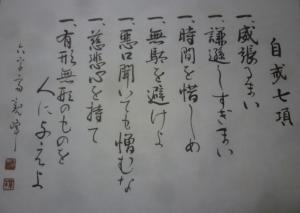 自戒七項
一、威張るまい
一、謙遜しすぎまい
一、時間を惜しめ
一、無駄を避けよ
一、悪口聞いても憎むな
一、慈悲心を持て
一、有形無形のものを
人に与えよ